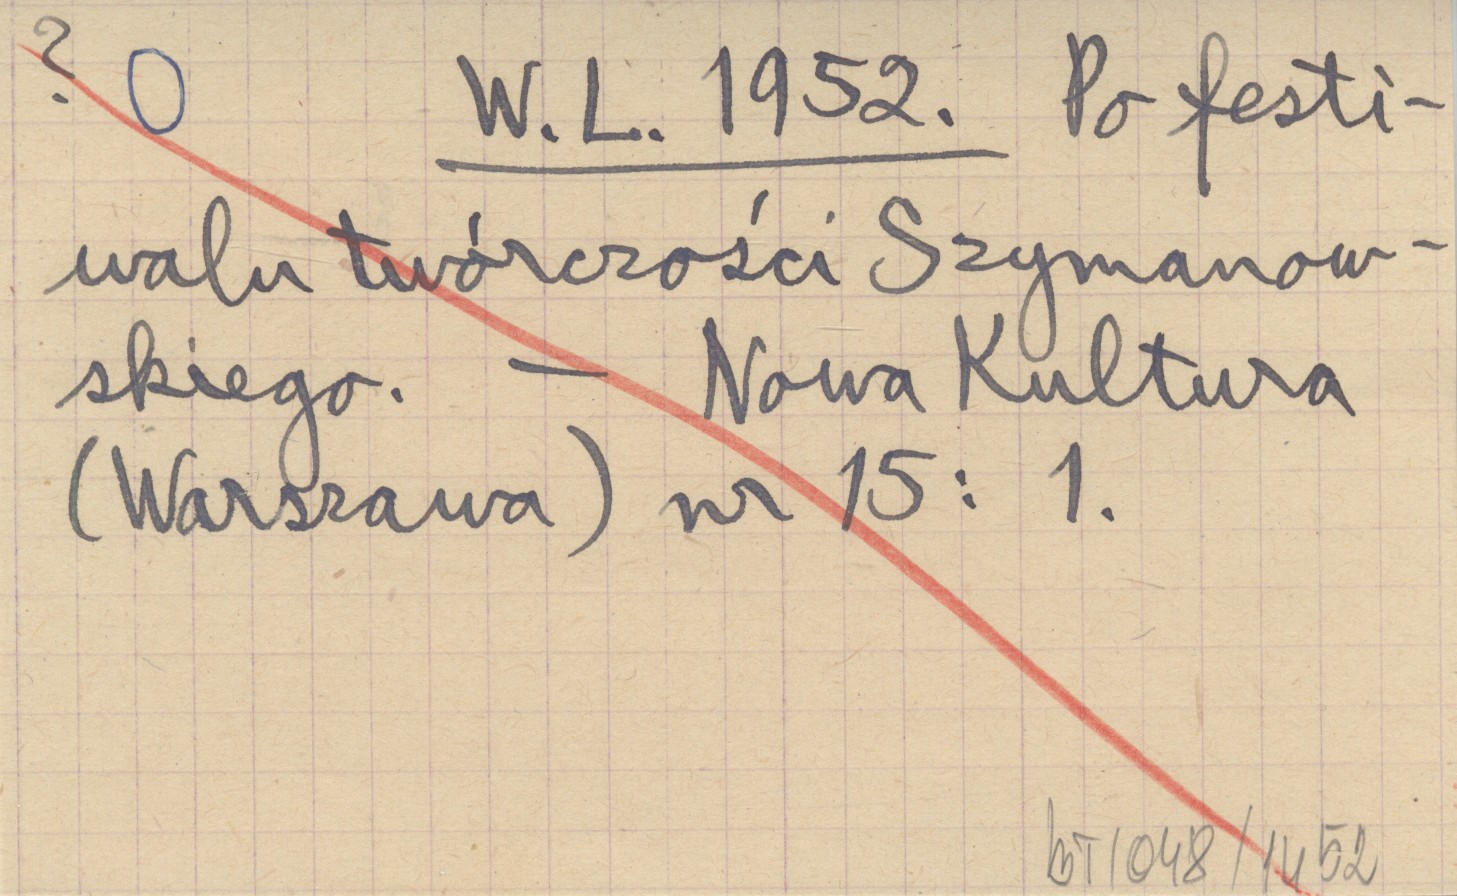 ? O W. L. 1952. Po festi-
walu twórczości Szymanow-
skiego. — Nowa Kultura
(Warszawa) nr 15: 1.